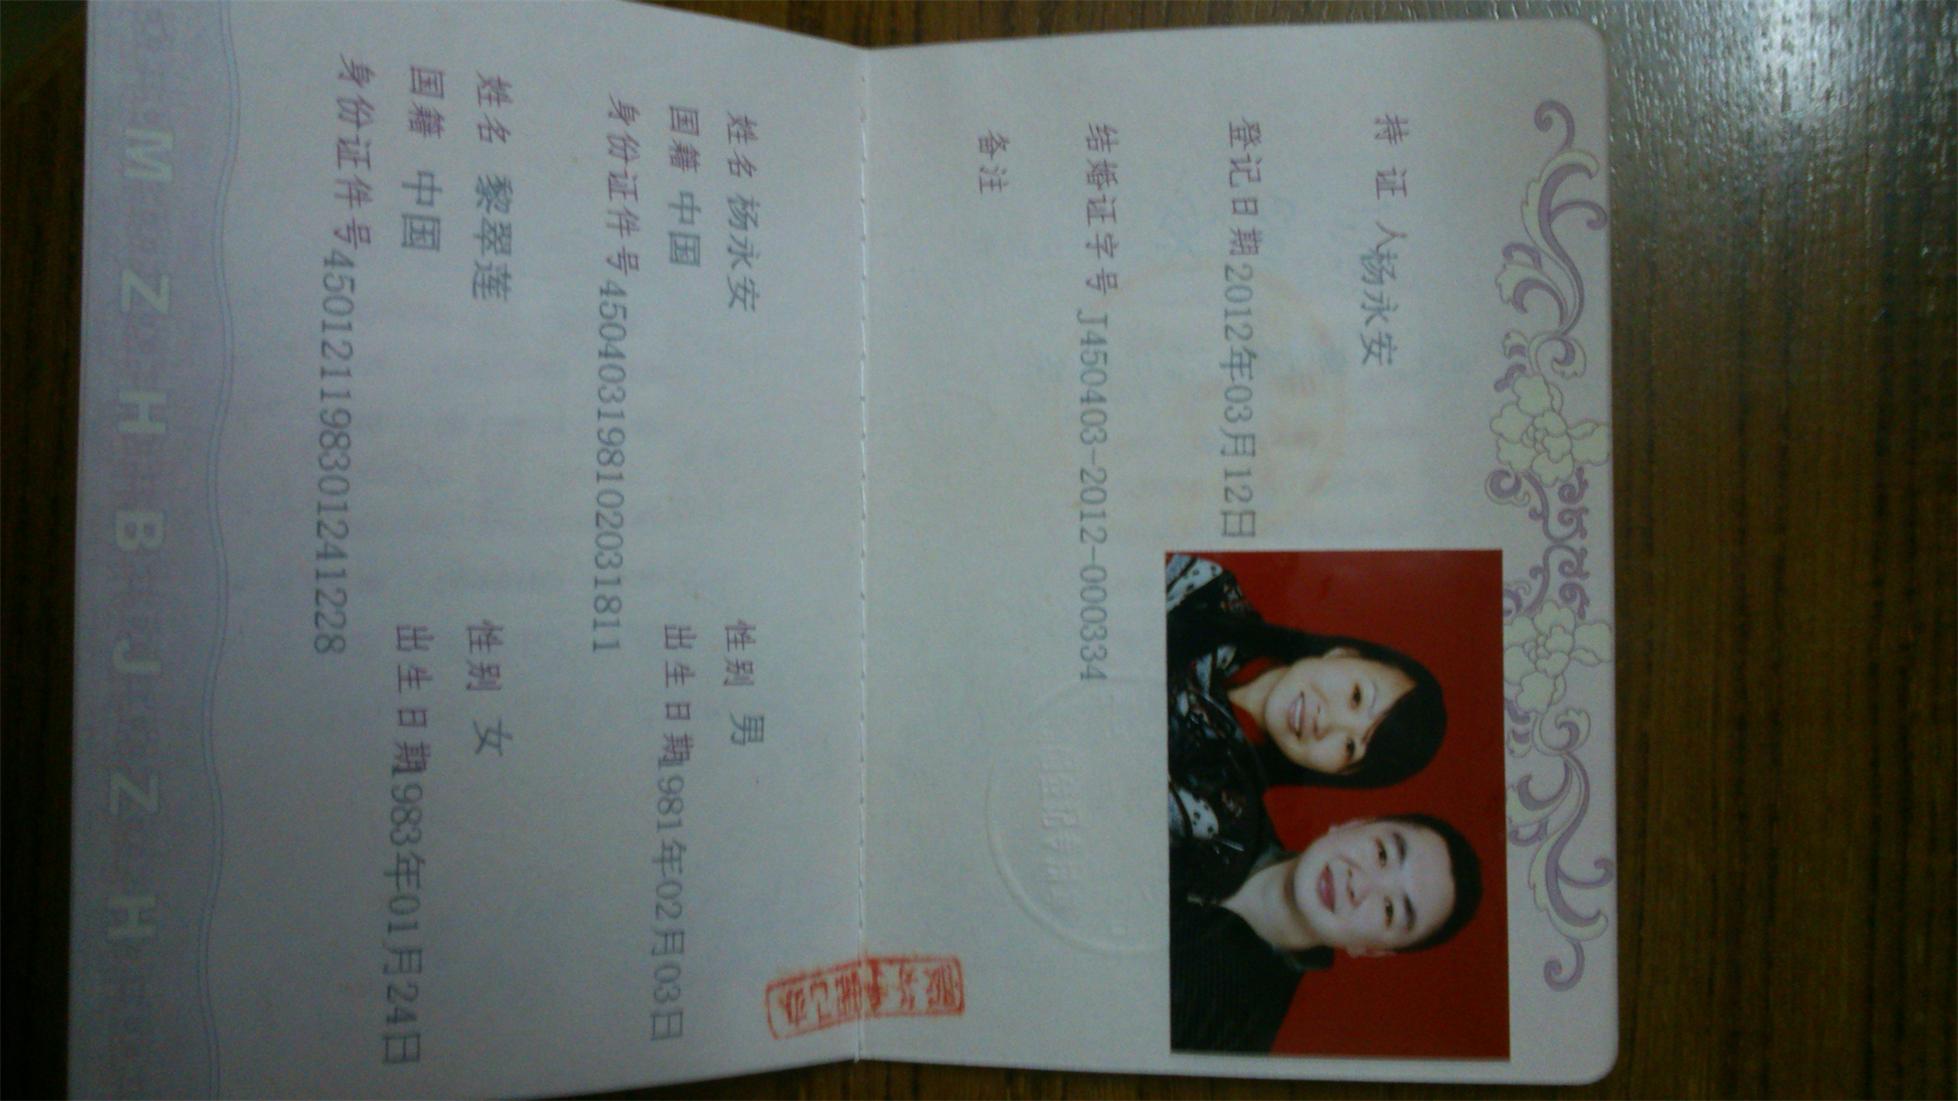 持证人 杨永安
登记日期 2012年03月12日
结婚证字号 J450403-2012-000334
备注
姓名 杨永安 性别 男
国籍 中国 出生日期 1981年02月03日
身份证件号 450403198102031811
姓名 黎翠莲 性别 女
国籍 中国 出生日期 1983年01月24日
身份证件号 450121198301241228
MZHBJZH